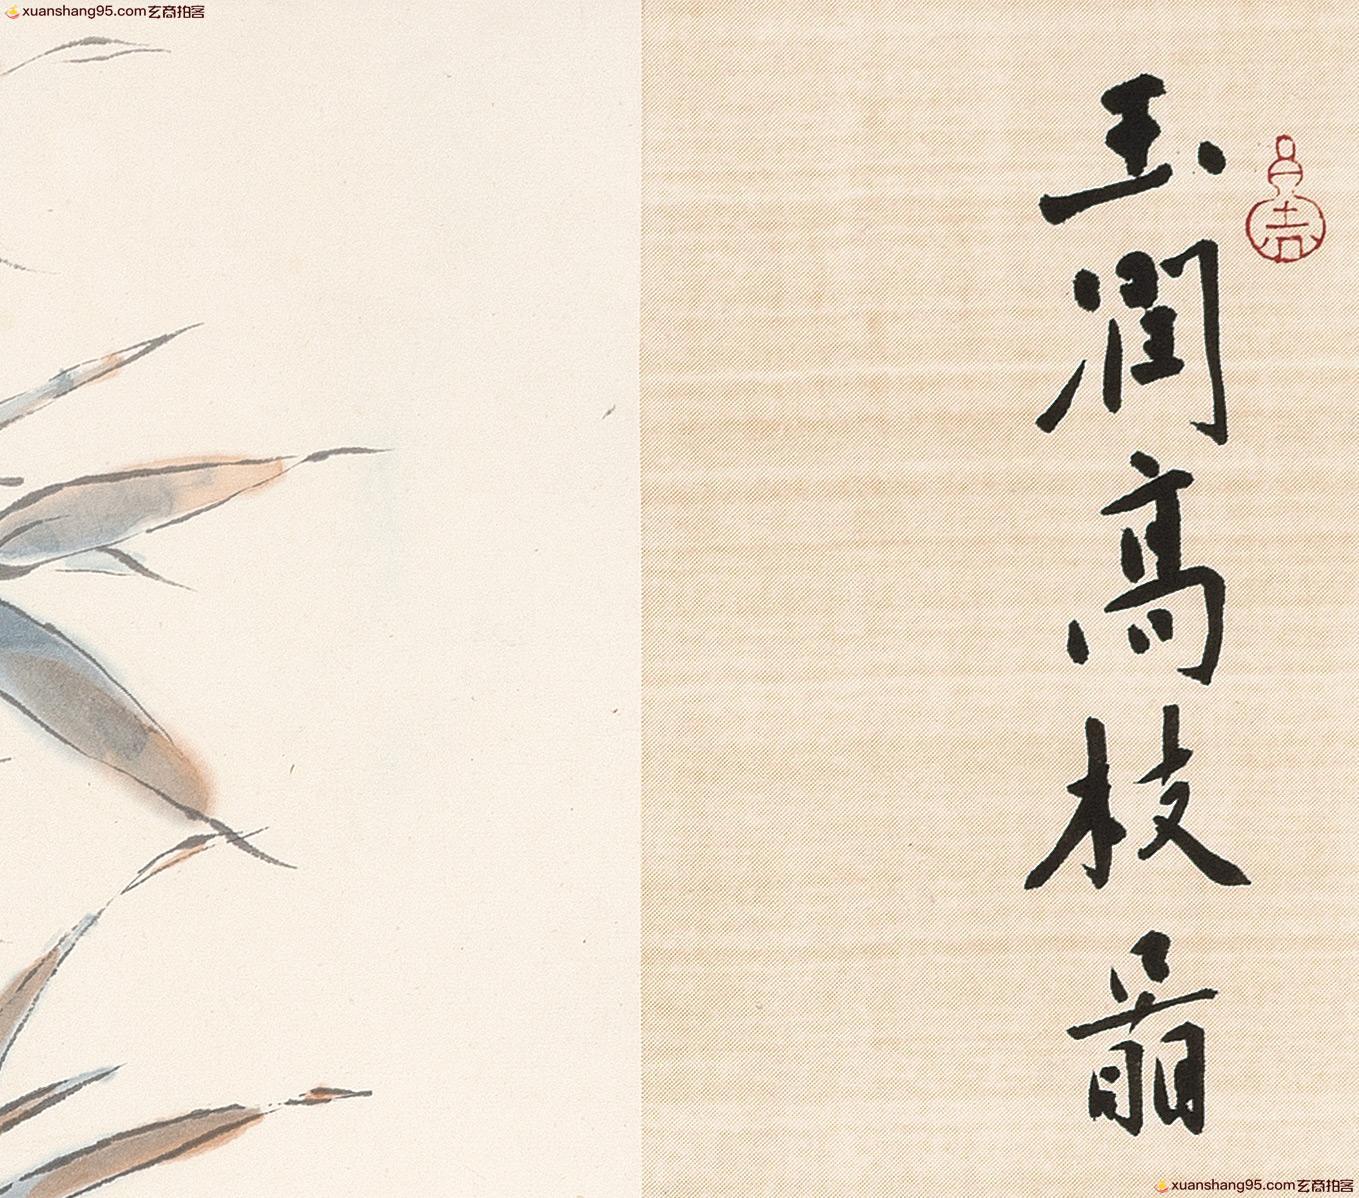 xuanshang95.com玄商拍客
玉潤高枝
xuanshang95.com玄商拍客